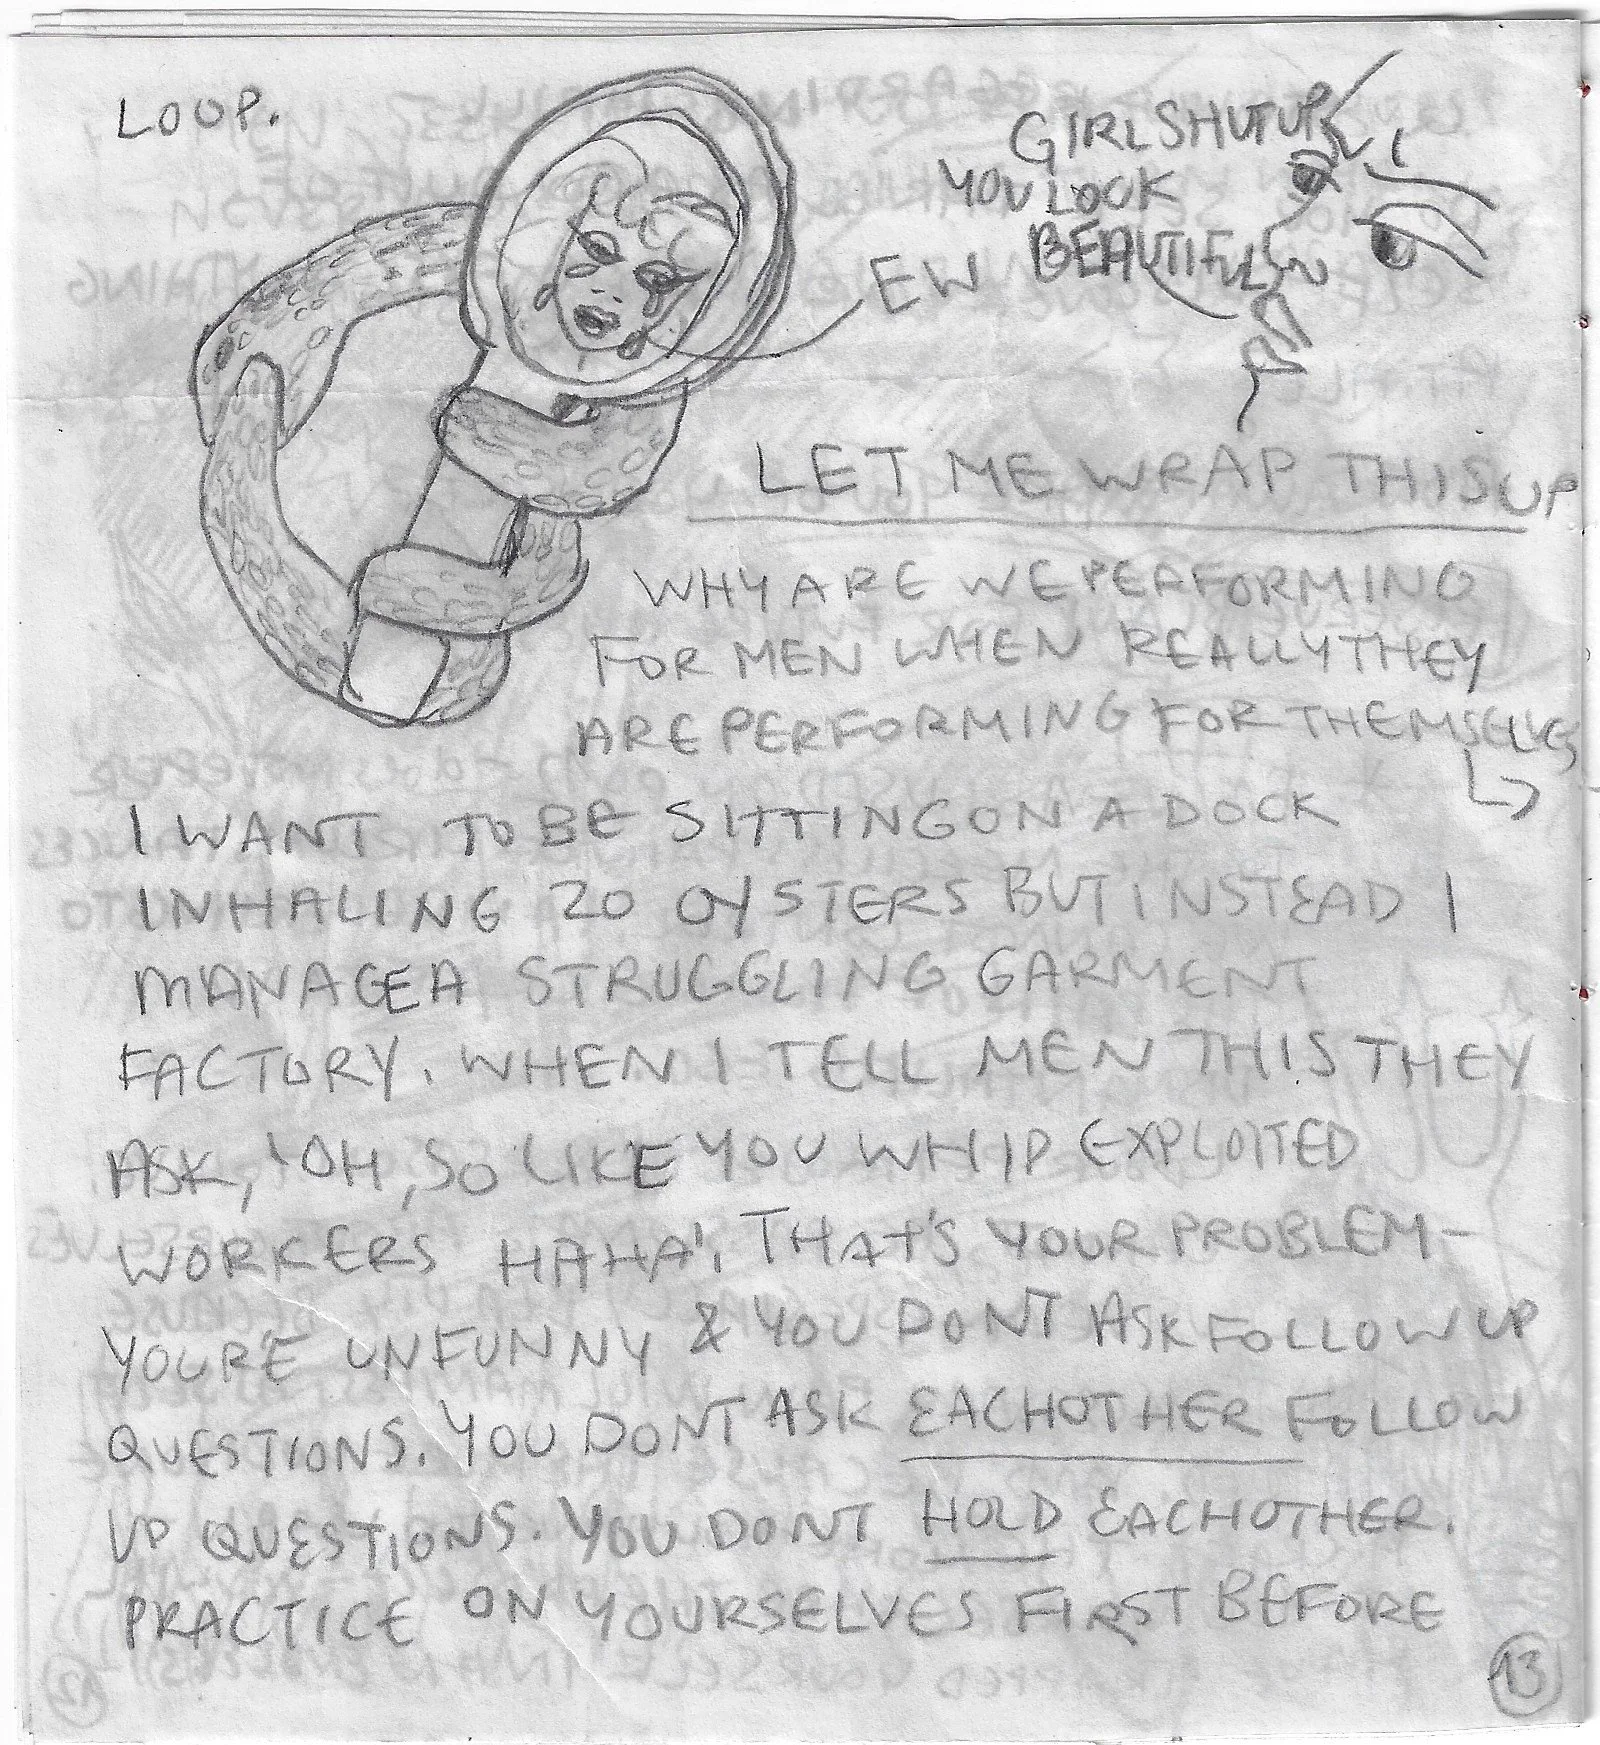 LOOP.
GIRL SHUT UP
YOU LOOK
BEAUTIFUL
EW
LET ME WRAP THIS UP
WHY ARE WE PERFORMING
FOR MEN WHEN REALLY THEY
ARE PERFORMING FOR THEMSELVES
I WANT TO BE SITTING ON A DOCK
INHALING 20 OYSTERS BUT INSTEAD I
MANAGE A STRUGGLING GARMENT
FACTORY. WHEN I TELL MEN THIS THEY
ASK, 'OH, SO LIKE YOU WHIP EXPLOITED
WORKERS HAHA'. THAT'S YOUR PROBLEM -
YOUR'E UNFUNNY & YOU DONT ASK FOLLOW UP
QUESTIONS. YOU DONT ASK EACHOTHER FOLLOW
UP QUESTIONS. YOU DONT HOLD EACHOTHER.
PRACTICE ON YOURSELVES FIRST BEFORE
13